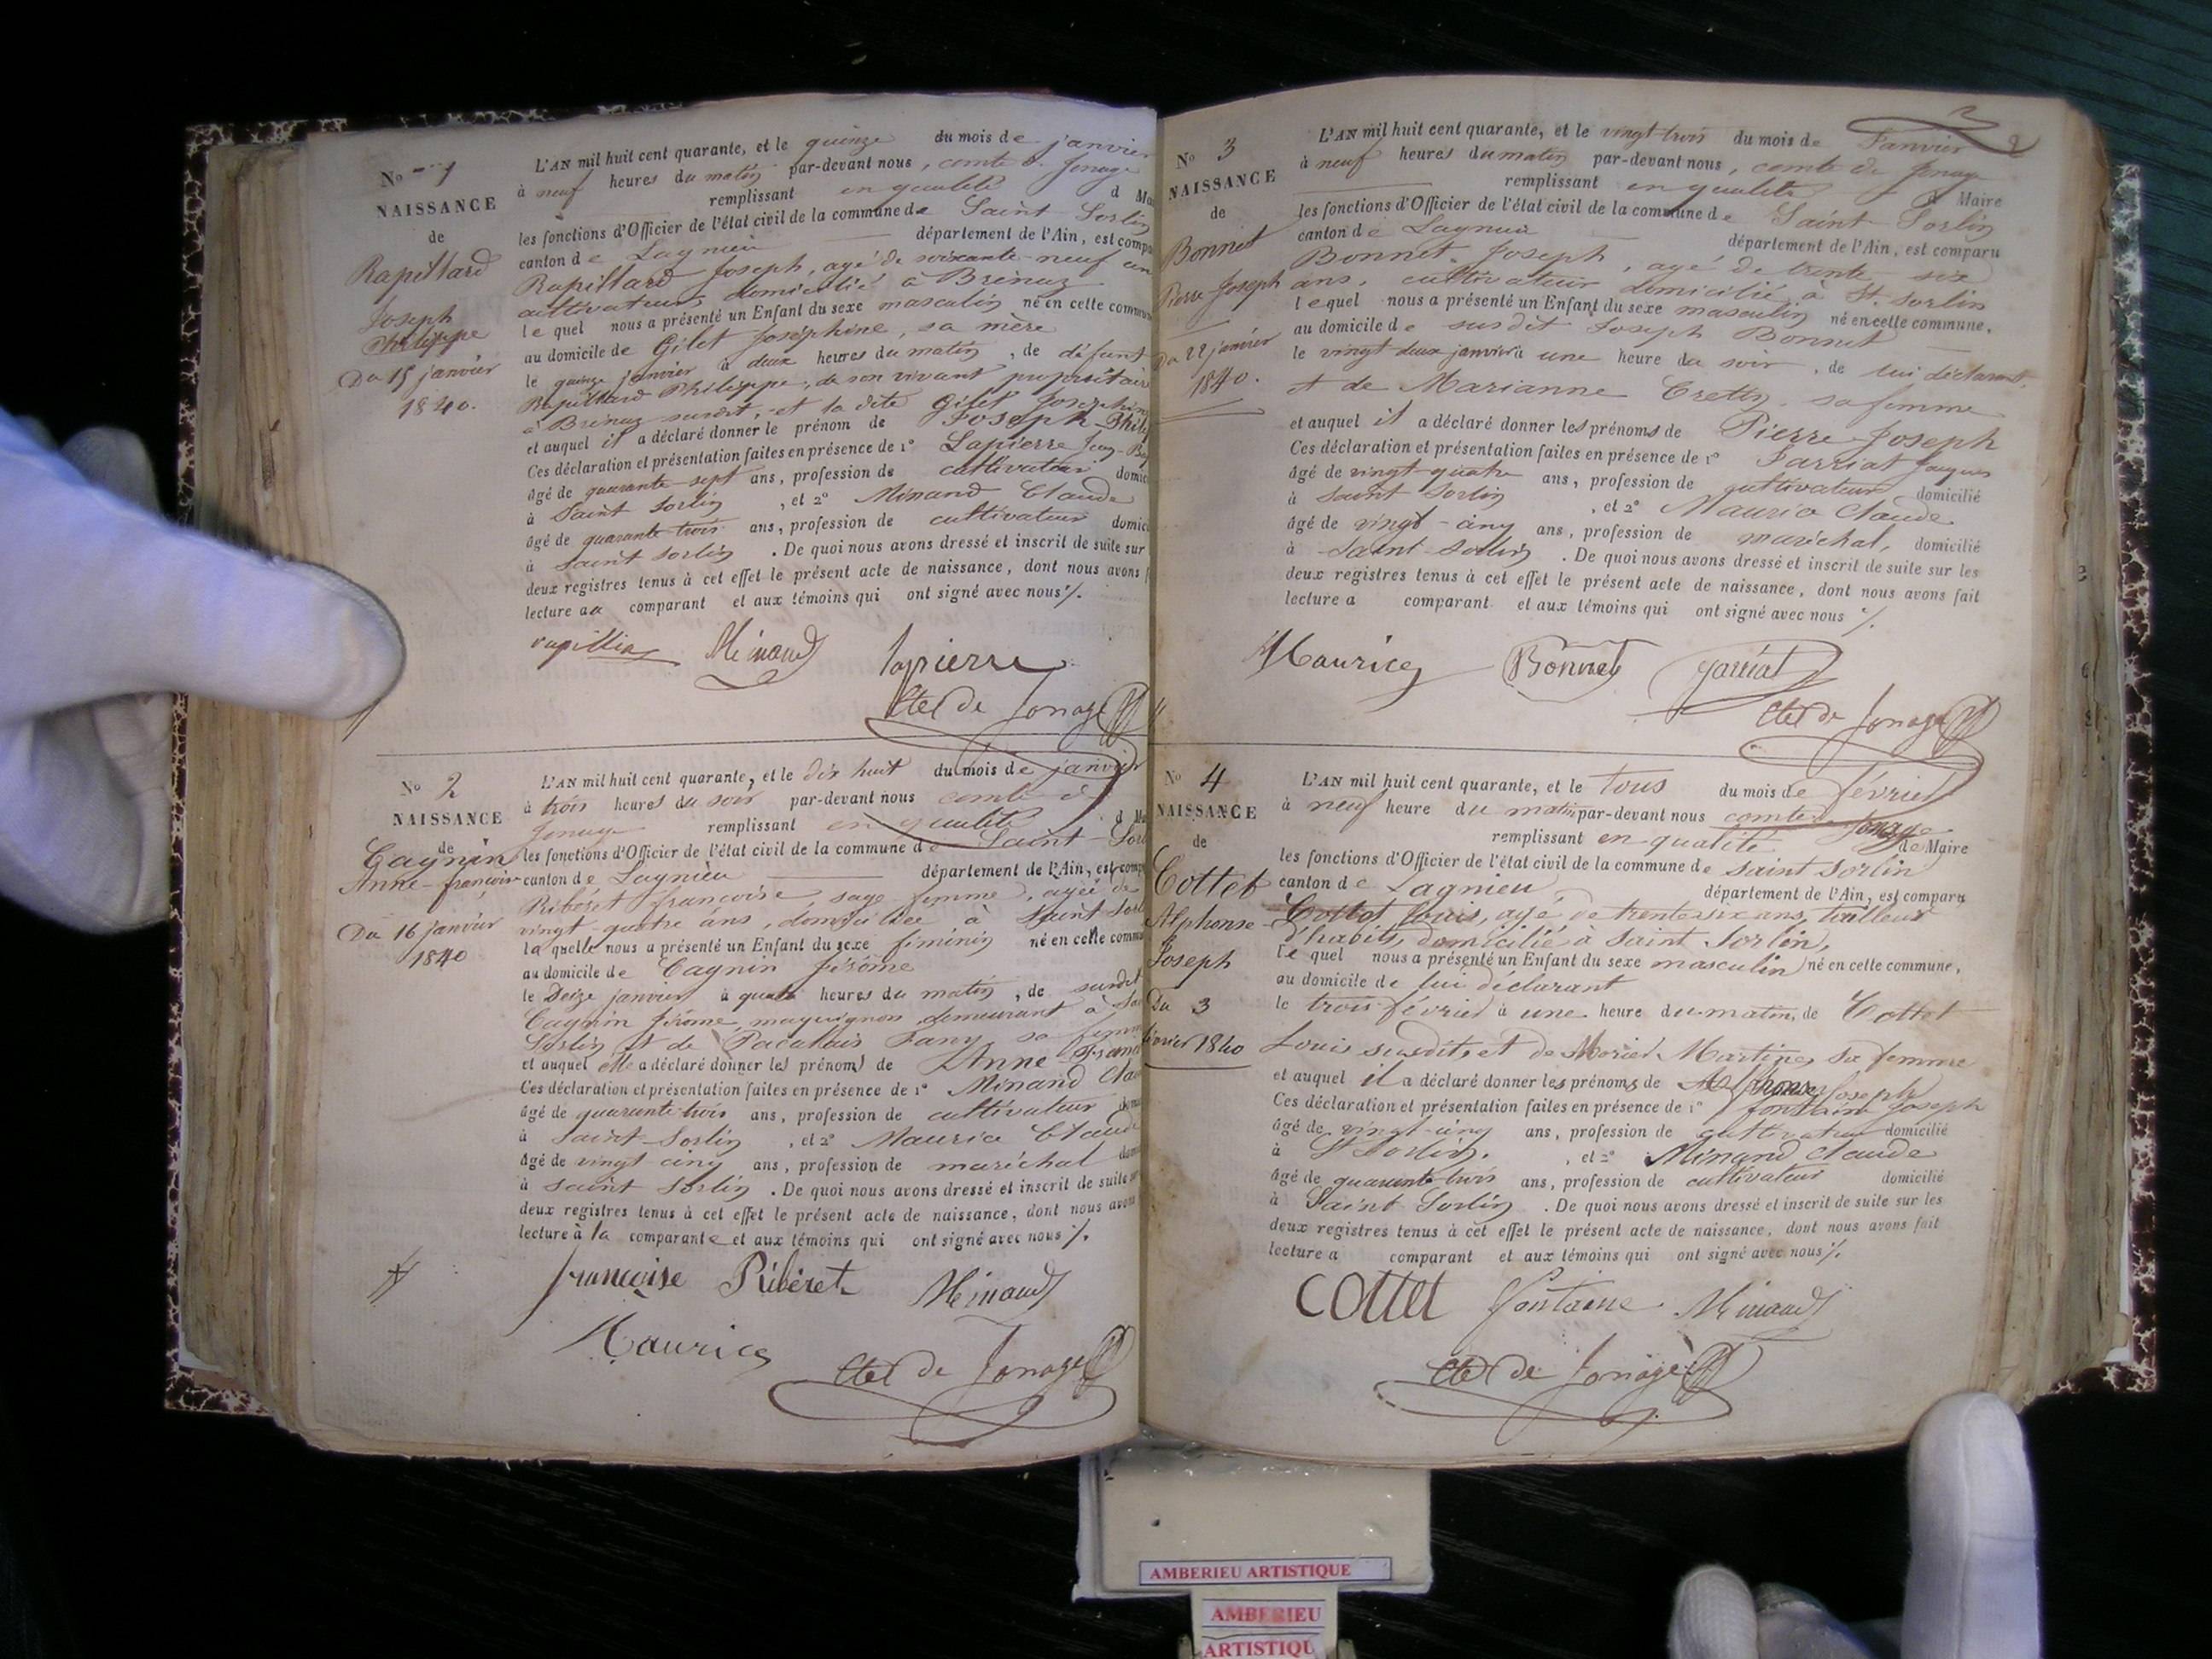 No 1
NAISSANCE
de
Rapillard
Joseph
Philippe
Du 15 janvier
1840.
L'AN mil huit cent quarante, et le quinze du mois de janvier
à neuf heures du matin par-devant nous, comte de Jonage
remplissant en qualité d Ma
les fonctions d'Officier de l'état civil de la commune de Saint Sorlin
canton de Lagnieu département de l'Ain, est compa
Rapillard Joseph, agé de soixante-neuf an
cultivateur domicilié à Brénaz
le quel nous a présenté un Enfant du sexe masculin né en cette commun
au domicile de Gilet Joséphine, sa mère
le quinze janvier à deux heures du matin, de défunt
Rapillard Philippe, de son vivant propriétaire
à Brénaz susdit, et la dite Gilet Joséphine
et auquel il a déclaré donner le prénom de Joseph-Phili
Ces déclaration et présentation faites en présence de 1° Lapierre Jean-Bap
âgé de quarante-sept ans, profession de cultivateur domic
à Saint Sorlin, et 2° Minand Claude
âgé de quarante-trois ans, profession de cultivateur domic
à Saint Sorlin. De quoi nous avons dressé et inscrit de suite sur
deux registres tenus à cet effet le présent acte de naissance, dont nous avons f
lecture au comparant et aux témoins qui ont signé avec nous ./.
Minand lapierre
Cte de Jonage
No 2
NAISSANCE
de
Cagnin
Anne-françoise
Du 16 janvier
1840
L'AN mil huit cent quarante, et le dix huit du mois de janvier
à trois heures du soir par-devant nous comte de
Jonage remplissant en qualité d Ma
les fonctions d'Officier de l'état civil de la commune de Saint-Sorl
canton de Lagnieu département de l'Ain, est comp
Ribéret françoise, sage femme, agée de
vingt-quatre ans, domiciliée à Saint Sorl
la quelle nous a présenté un Enfant du sexe féminin né en cette commu
au domicile de Cagnin Jérôme
le Seize janvier à quatre heures du matin, de susdit
Cagnin Jérôme, maquignon demeurant à Sai
Sorlin et de Pacalais Fany sa femme
et auquel elle a déclaré donner les prénoms de Anne-Franc
Ces déclaration et présentation faites en présence de 1° Minand Clau
âgé de quarante-trois ans, profession de cultivateur dom
à Saint-Sorlin, et 2° Maurice Claude
âgé de vingt-cinq ans, profession de maréchal dom
à saint Sorlin. De quoi nous avons dressé et inscrit de suite sur
deux registres tenus à cet effet le présent acte de naissance, dont nous avons
lecture à la comparante et aux témoins qui ont signé avec nous ./.
françoise Ribéret Minand
Maurice
Cte de Jonage
2
No 3
NAISSANCE
de
Bonnet
Pierre Joseph
Du 22 janvier
1840.
L'AN mil huit cent quarante, et le vingt-trois du mois de Janvier
à neuf heures du matin par-devant nous, comte de Jonage
remplissant en qualité d Maire
les fonctions d'Officier de l'état civil de la commune de Saint-Sorlin
canton de Lagnieu département de l'Ain, est comparu
Bonnet Joseph, agé de trente-six
ans, cultivateur domicilié à St. Sorlin
le quel nous a présenté un Enfant du sexe masculin né en cette commune,
au domicile de susdit Joseph Bonnet
le vingt deux janvier à une heure du soir, de lui déclarant
et de Marianne Cretin, sa femme
et auquel il a déclaré donner les prénoms de Pierre-Joseph
Ces déclaration et présentation faites en présence de 1° Jarriat Jacques
âgé de vingt-quatre ans, profession de cultivateur domicilié
à Saint Sorlin, et 2° Maurice Claude
âgé de vingt-cinq ans, profession de maréchal, domicilié
à Saint-Sorlin. De quoi nous avons dressé et inscrit de suite sur les
deux registres tenus à cet effet le présent acte de naissance, dont nous avons fait
lecture a comparant et aux témoins qui ont signé avec nous ./.
Maurice Bonnet jarriat
Cte de Jonage
No 4
NAISSANCE
de
Cottet
Alphonse
Joseph
Du 3
février 1840
L'AN mil huit cent quarante, et le trois du mois de février
à neuf heure du matin par-devant nous comte de Jonage
remplissant en qualité de Maire
les fonctions d'Officier de l'état civil de la commune de saint Sorlin
canton de Lagnieu département de l'Ain, est comparu
Cottet Louis, agé de trente six ans, tailleur
d'habits, domicilié à saint Sorlin,
le quel nous a présenté un Enfant du sexe masculin né en cette commune,
au domicile de lui déclarant
le trois février à une heure du matin, de Cottet
Louis susdit, et de Morier Martine, sa femme
et auquel il a déclaré donner les prénoms de Alphonse Joseph
Ces déclaration et présentation faites en présence de 1° fontaine Joseph
âgé de vingt-cinq ans, profession de cultivateur domicilié
à St Sorlin, et 2° Minand Claude
âgé de quarante-trois ans, profession de cultivateur domicilié
à Saint Sorlin. De quoi nous avons dressé et inscrit de suite sur les
deux registres tenus à cet effet le présent acte de naissance, dont nous avons fait
lecture a comparant et aux témoins qui ont signé avec nous ./.
Cottet fontaine Minand
Cte de Jonage
AMBERIEU ARTISTIQUE
AMBERIEU
ARTISTIQU